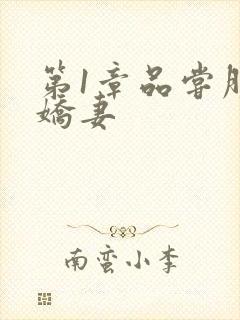 第1章品尝
娇妻
南蛮小李